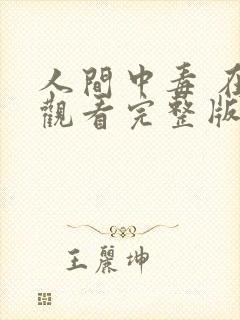 人間中毒 在
觀看完整版
王麗坤